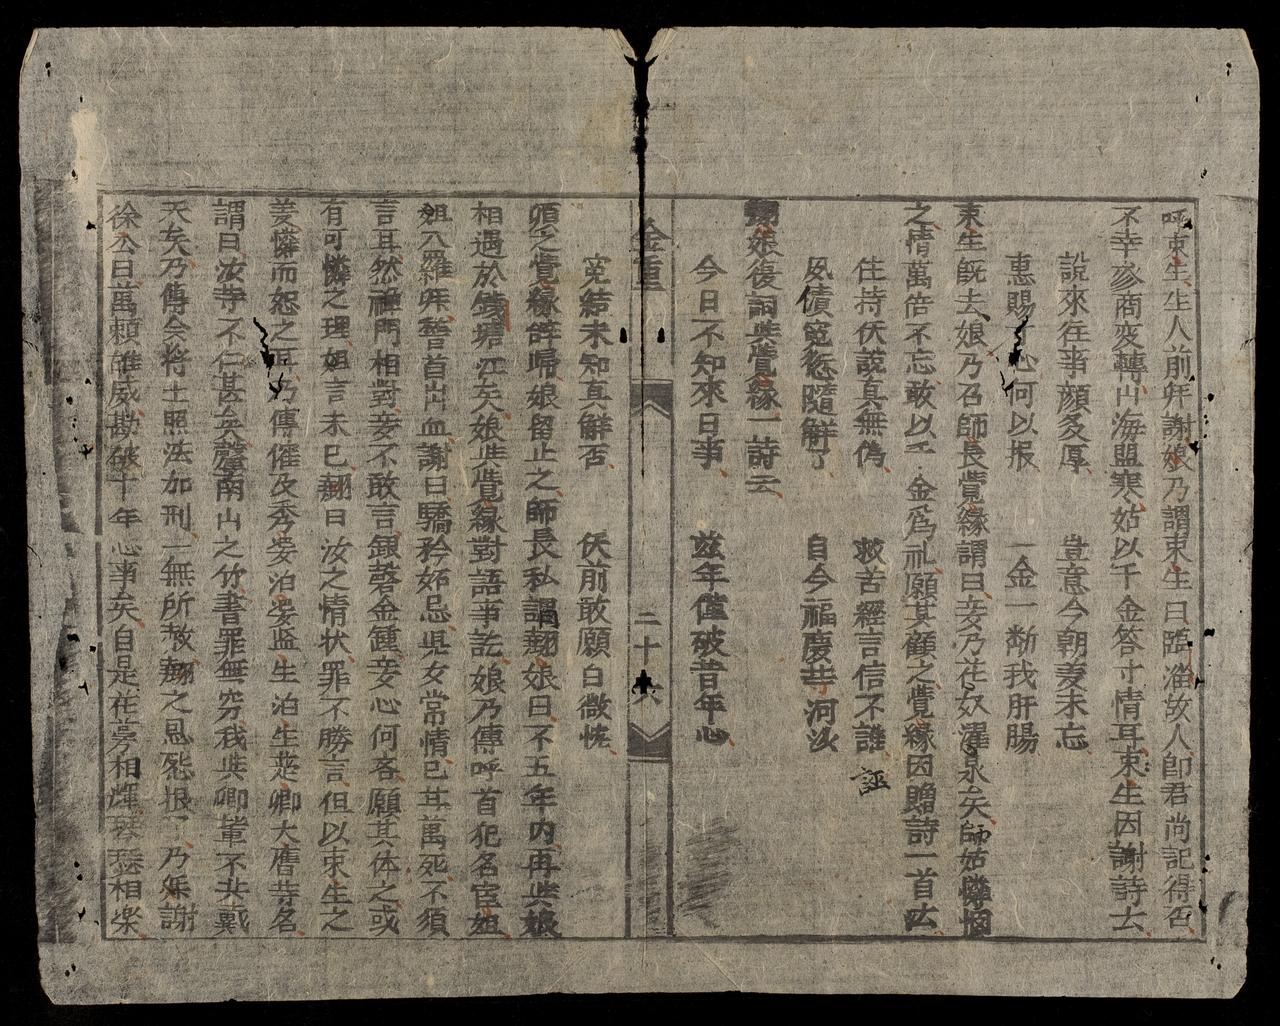 呼束生生人前年謝娘乃謂束生曰臨淄故人郎君尚記得否
不幸參商変轉山海盟寒姑以千金答寸情耳束生因謝詩云
說來往事顔多厚 豈意今朝姜未忘
惠賜 心何以报 一金一斷我肝腸
束生既去娘乃召師長覺緣謂曰妾乃在奴濯泉矣師姑憐恤
之情萬倍不忘敢以千金爲礼願其顧之覺緣因贈詩一首云
住持伏說真無偽 救苦經言信不誰 誣
夙債冤愆隨觧了 自今福慶共河沙
翹娘復詞與覺緣一詩云
今日不知來日事 玆年僅破昔年心
冤結未知真觧否 佚前敢願白微忱
金重 二十六
頃之覺緣辞歸娘留止之師長私謂翹娘曰不五年内再與娘
相遇於錢塘江矣娘與覺緣對語事訖娘乃傳呼首犯名宦姐
姐入羅年䭫首出血謝曰驕矜妬忌児女常情已耳萬死不須
言耳然禪門相對妾不敢言銀磬金鍾妾心何吝願其体之或
有可憐之理姐言未已翹曰汝之情状罪不勝言但以束生之
姜憐而恕之 乃傳催及秀婆泊婆监生泊生楚卿大鷹等名
謂曰汝等不仁甚矣罄南山之竹書罪無窮我與卿輩不共戴
天矣乃傳令将士照法加刑一無所赦翹之恩愁报了乃乘謝
徐公曰萬頼雄威勘破十年心事矣自是在旁相輝琴瑟相楽